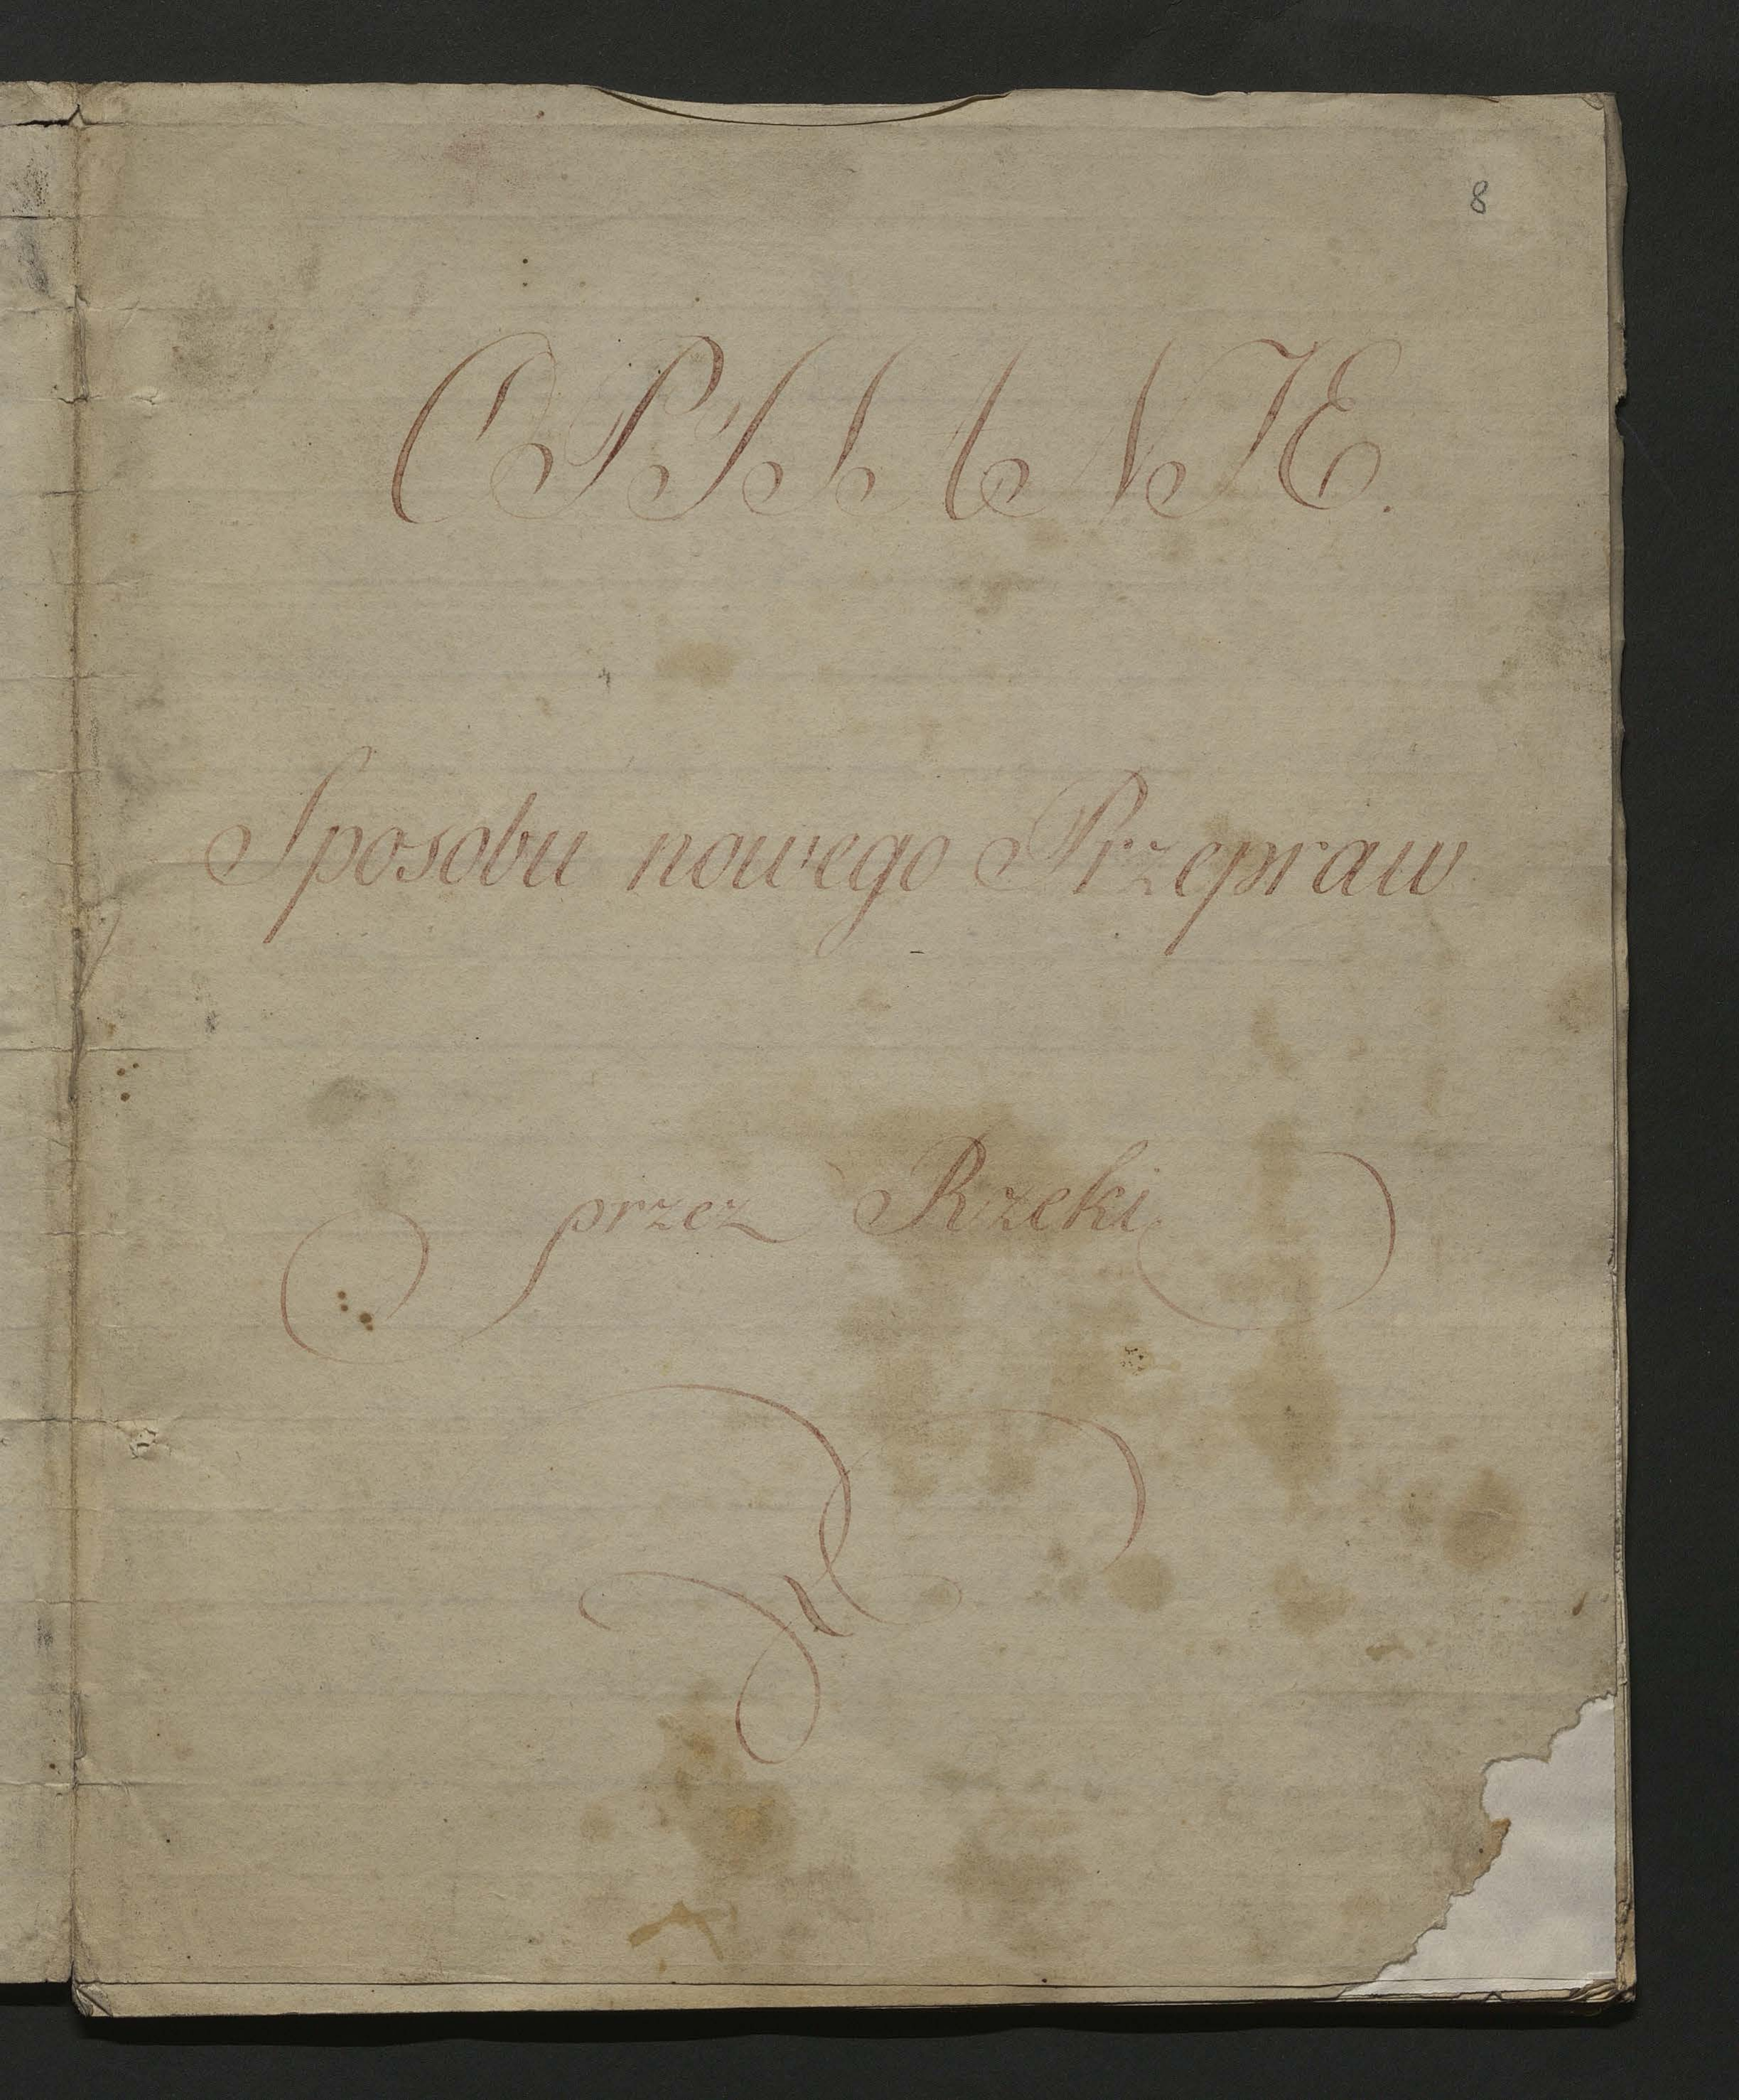 8
OPISANIE.
Sposobu nowego Przepraw
przez Rzeki